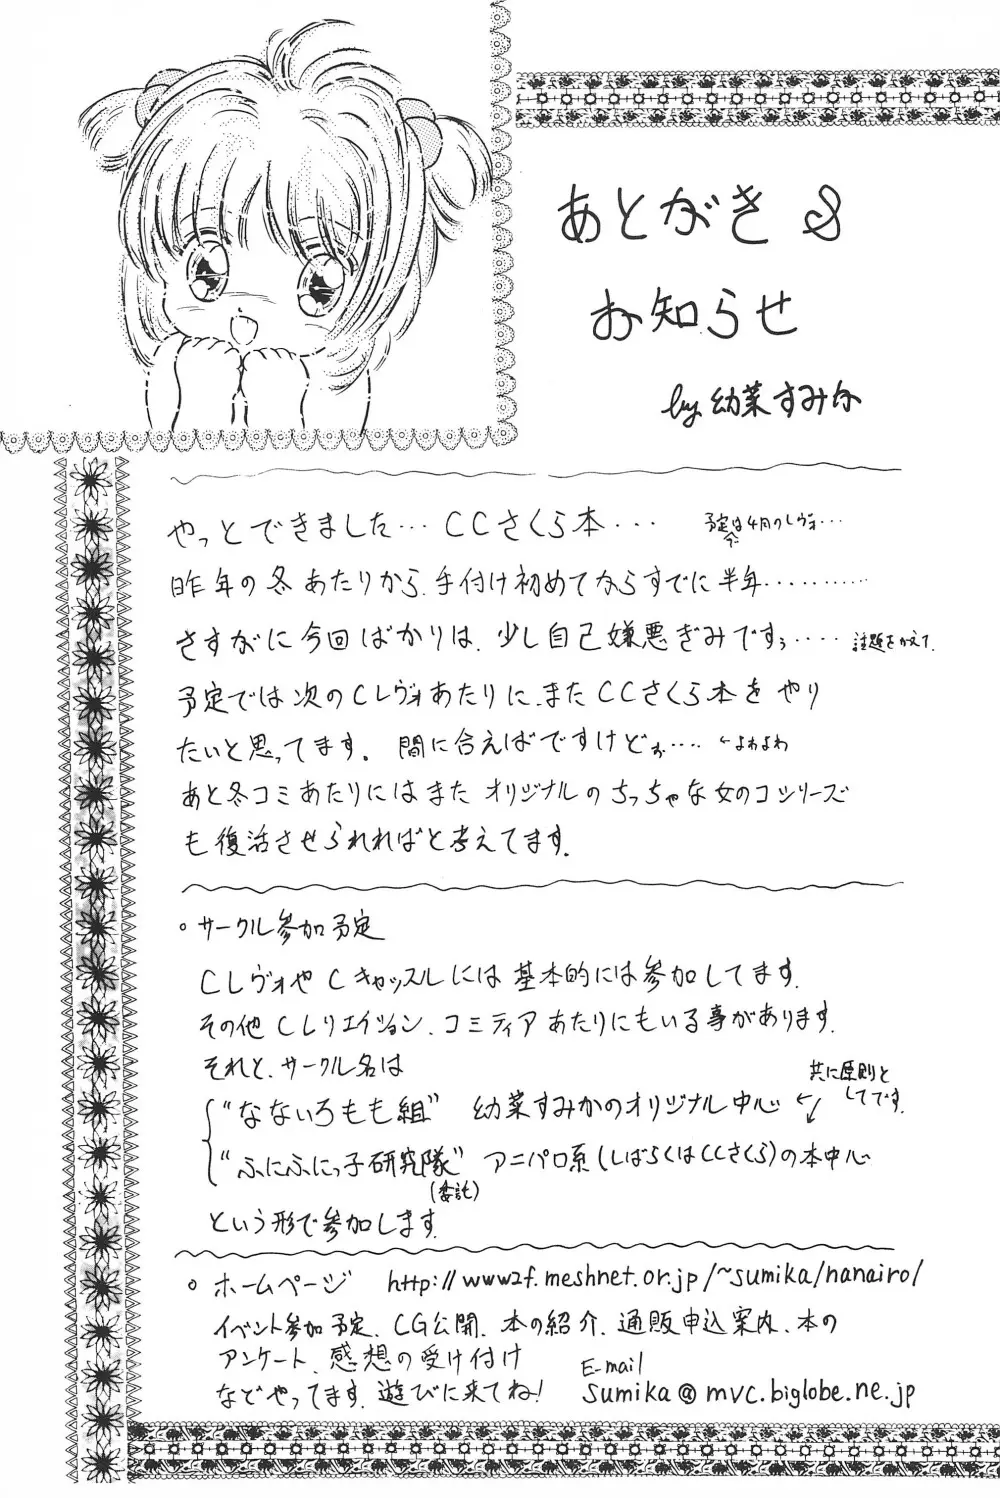 あとがき &
お知らせ
by 幼菜すみか
やっとできました… CCさくら本… 予定は4月のレヴォ…
昨年の冬あたりから、手付け初めてならすでに半年…………
さすがに今回ばかりは、少し自己嫌悪ぎみですぅ…… 話題をかえて、
予定では次のCレヴォあたりに、またCCさくら本をやり
たいと思ってます。間に合えばですけどぉ…… ←よわよわ
あと冬コミあたりにはまたオリジナルのちっちゃな女のコシリーズ
も復活させられればと考えてます。
○サークル参加予定
CレヴォやCキャッスルには基本的には参加してます。
その他Cレリエイション、コミティアあたりにもいる事があります。
それと、サークル名は
"なないろもも組" 幼菜すみかのオリジナル中心 ← 共に原則と
してです。
"ふにふにっ子研究隊" アニパロ系(しばらくはCCさくら)の本中心
(委託)
という形で参加します。
○ホームページ http://www2f.meshnet.or.jp/~sumika/nanairo/
イベント参加予定、CG公開、本の紹介、通販申込案内、本の
アンケート、感想の受け付け
などやってます。遊びに来てね!
E-mail
sumika@mvc.biglobe.ne.jp